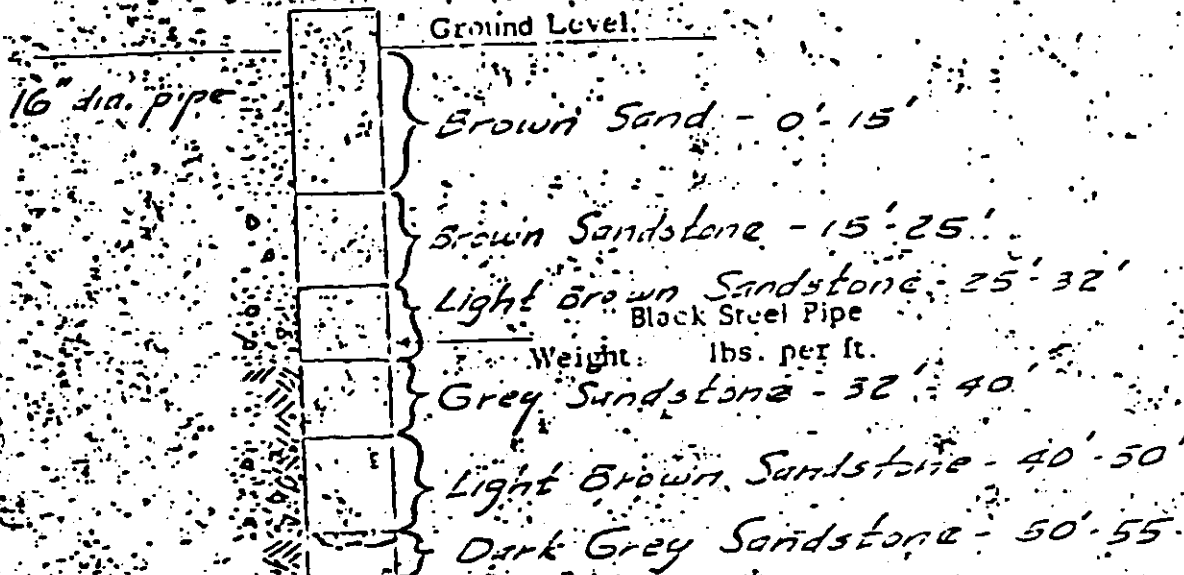 Ground Level.
16" dia. pipe
Brown Sand - 0'-15'
Brown Sandstone - 15'-25'
Light Brown Sandstone - 25'-32'
Black Steel Pipe
Weight lbs. per ft.
Grey Sandstone - 32'-40'
Light Brown Sandstone - 40'-50'
Dark Grey Sandstone - 50'-55